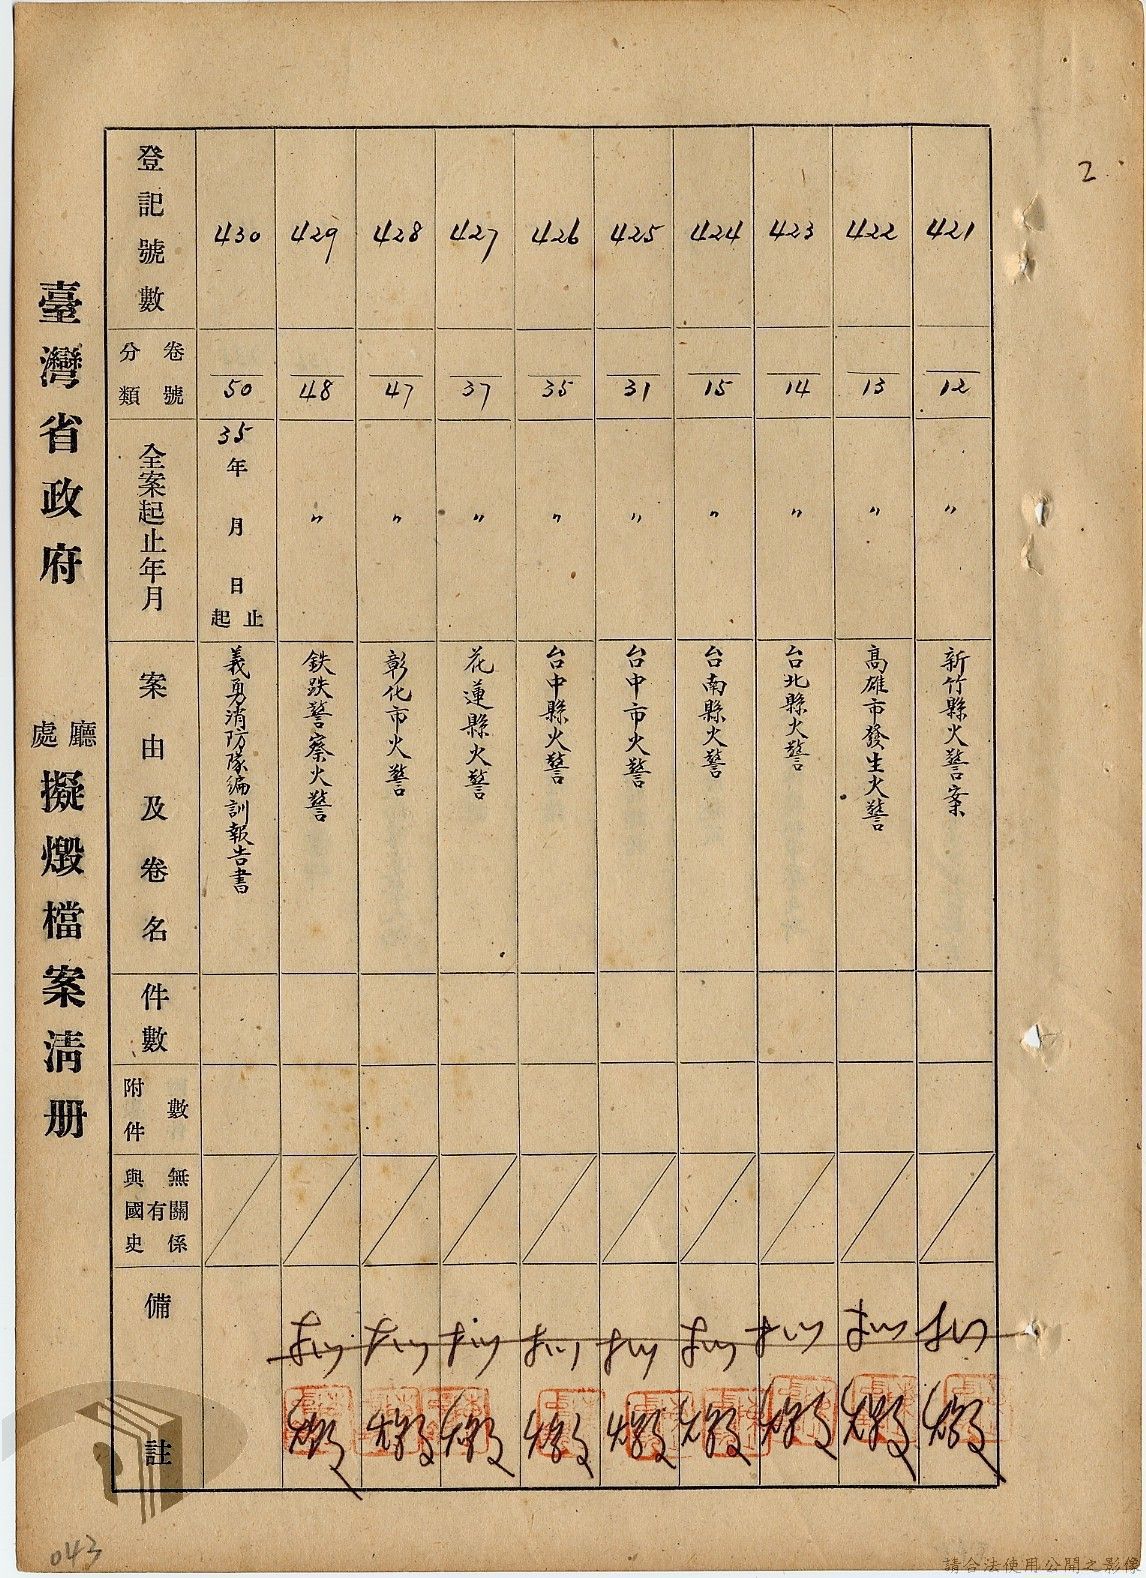 2
421
12
〃
新竹縣火警案
422
13
〃
高雄市發生火警
423
14
〃
台北縣火警
424
15
〃
台南縣火警
425
31
〃
台中市火警
426
35
〃
台中縣火警
427
37
〃
花蓮縣火警
428
47
〃
彰化市火警
429
48
〃
鉄跌警察火警
430
50
35年 月 日起止
義勇消防隊編訓報告書
登記號數
卷號
分類
全案起止年月
案由及卷名
件數
附件數
與國史有無關係
備註
臺灣省政府 廳處 擬燬檔案清册
燬
燬
燬
燬
燬
燬
燬
燬
燬
043
請合法使用公開之影像